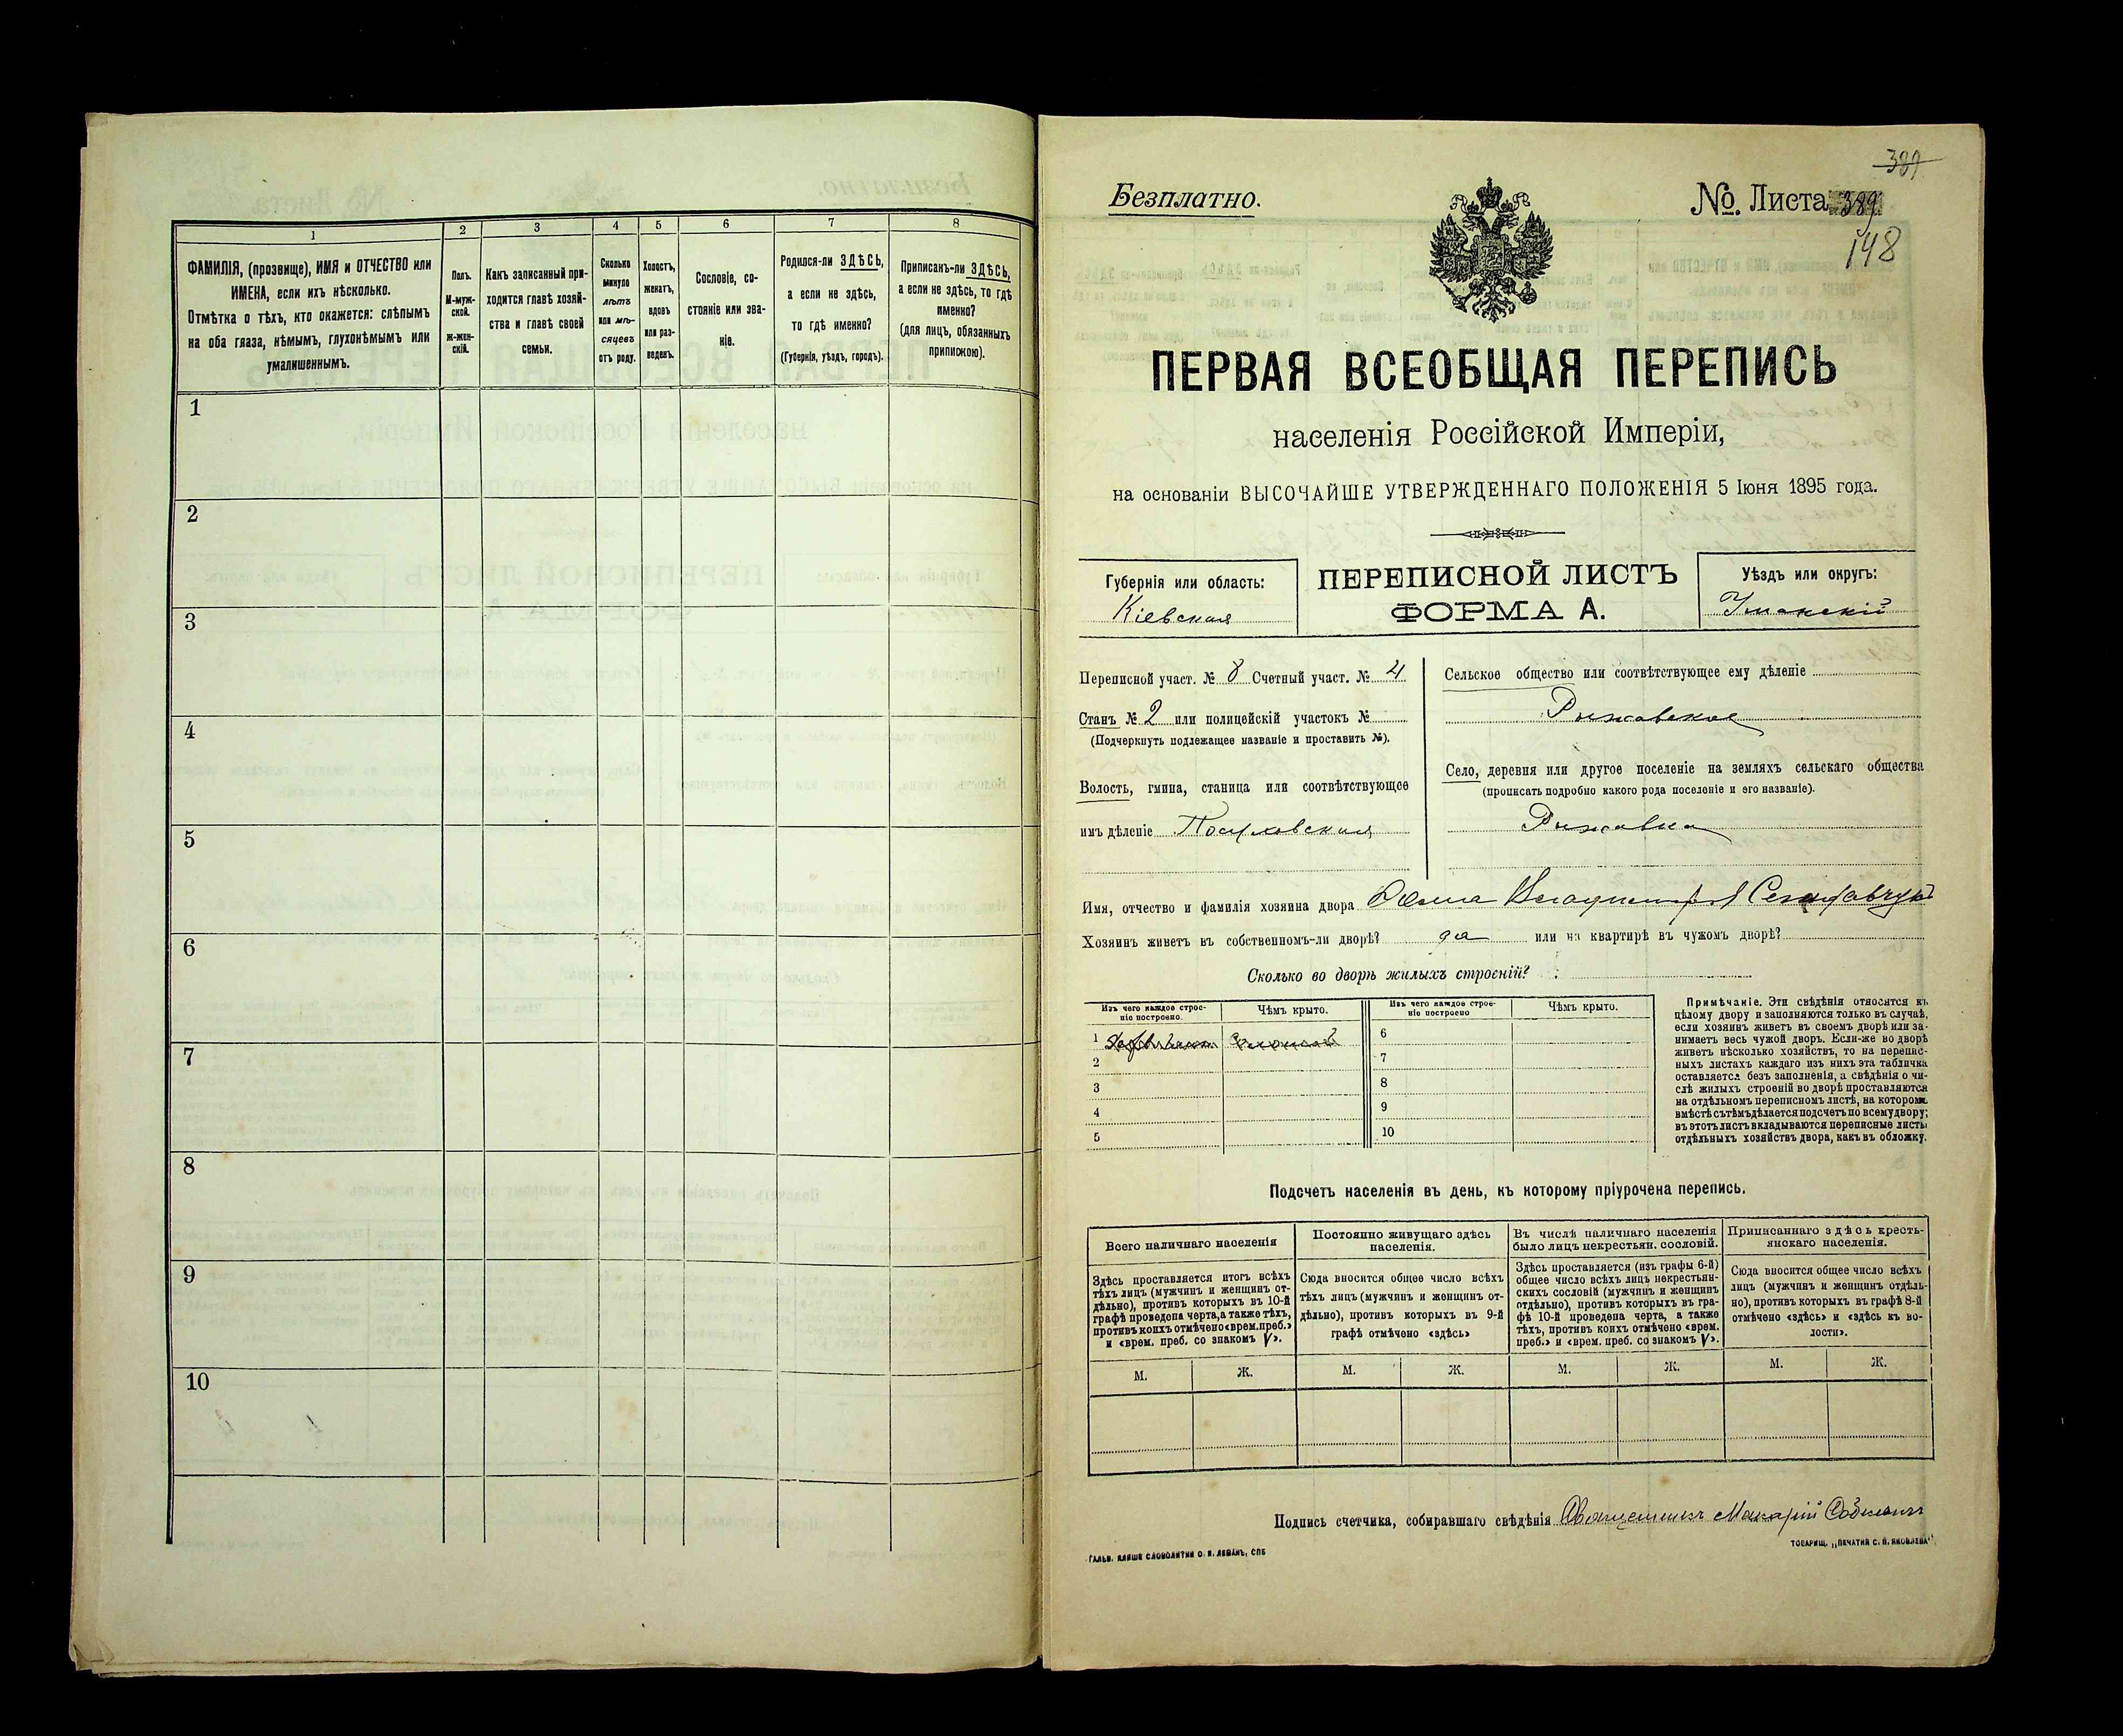 1
2
3
4
5
6
7
8
ФАМИЛІЯ, (прозвище), ИМЯ и ОТЧЕСТВО или
ИМЕНА, если ихъ нѣсколько.
Отмѣтка о тѣхъ, кто окажется: слѣпымъ
на оба глаза, нѣмымъ, глухонѣмымъ или
умалишеннымъ.
Полъ.
М-муж-
ской.
ж-жен-
скій.
Какъ записанный при-
ходится главѣ хозяй-
ства и главѣ своей
семьи.
Сколько
минуло
лѣтъ
или мѣ-
сяцевъ
отъ роду.
Холостъ,
женатъ,
вдовъ
или раз-
веденъ.
Сословіе, со-
стояніе или зва-
ніе.
Родился-ли ЗДѢСЬ,
а если не здѣсь,
то гдѣ именно?
(Губернія, уѣздъ, городъ).
Приписанъ-ли ЗДѢСЬ,
а если не здѣсь, то гдѣ
именно?
(для лицъ, обязанныхъ
припискою).
1
2
3
4
5
6
7
8
9
10
389
Безплатно.
№. Листа 389
148
ПЕРВАЯ ВСЕОБЩАЯ ПЕРЕПИСЬ
населенія Россійской Имперіи,
на основаніи ВЫСОЧАЙШЕ УТВЕРЖДЕННАГО ПОЛОЖЕНІЯ 5 Іюня 1895 года.
Губернія или область:
Кіевская
ПЕРЕПИСНОЙ ЛИСТЪ
ФОРМА А.
Уѣздъ или округъ:
Уманскій
Переписной участ. № 8 Счетный участ. № 4
Станъ № 2 или полицейскій участокъ №
(Подчеркнуть подлежащее названіе и проставить №).
Волость, гмина, станица или соотвѣтствующее
имъ дѣленіе
Сельское общество или соотвѣтствующее ему дѣленіе
Рыжавское
Село, деревня или другое поселеніе на земляхъ сельскаго общества
(прописать подробно какого рода поселеніе и его названіе).
Рыжавка
Имя, отчество и фамилія хозяина двора
Хозяинъ живетъ въ собственномъ-ли дворѣ? да или на квартирѣ въ чужомъ дворѣ?
Сколько во дворѣ жилыхъ строеній?
Изъ чего каждое строе-
ніе построено.
Чѣмъ крыто.
Изъ чего каждое строе-
ніе построено
Чѣмъ крыто.
1
2
3
4
5
6
7
8
9
10
Примѣчаніе. Эти свѣдѣнія относятся къ
цѣлому двору и заполняются только въ случаѣ,
если хозяинъ живетъ въ своемъ дворѣ или за-
нимаетъ весь чужой дворъ. Если-же во дворѣ
живетъ нѣсколько хозяйствъ, то на перепис-
ныхъ листахъ каждаго изъ нихъ эта табличка
оставляется безъ заполненія, а свѣдѣнія о чи-
слѣ жилыхъ строеній во дворѣ проставляются
на отдѣльномъ переписномъ листѣ, на которомъ
вмѣстѣ съ тѣмъ дѣлается подсчетъ по всему двору;
въ этотъ листъ вкладываются переписные листы
отдѣльныхъ хозяйствъ двора, какъ въ обложку.
Подсчетъ населенія въ день, къ которому пріурочена перепись.
Всего наличнаго населенія
Здѣсь проставляется итогъ всѣхъ
тѣхъ лицъ (мужчинъ и женщинъ от-
дѣльно), противъ которыхъ въ 10-й
графѣ проведена черта, а также тѣхъ,
противъ коихъ отмѣчено «врем. преб.»
и «врем. преб. со знакомъ V».
Постоянно живущаго здѣсь
населенія.
Сюда вносится общее число всѣхъ
тѣхъ лицъ (мужчинъ и женщинъ от-
дѣльно), противъ которыхъ въ 9-й
графѣ отмѣчено «здѣсь»
Въ числѣ наличнаго населенія
было лицъ некрестьян. сословій.
Здѣсь проставляется (изъ графы 6-й)
общее число всѣхъ лицъ некрестьян-
скихъ сословій (мужчинъ и женщинъ
отдѣльно), противъ которыхъ въ гра-
фѣ 10-й проведена черта, а также
тѣхъ, противъ коихъ отмѣчено «врем.
преб.» и «врем. преб. со знакомъ V».
Приписаннаго здѣсь кресть-
янскаго населенія.
Сюда вносится общее число всѣхъ
лицъ (мужчинъ и женщинъ отдѣль-
но), противъ которыхъ въ графѣ 8-й
отмѣчено «здѣсь» и «здѣсь къ во-
лости».
М. Ж. М. Ж. М. Ж. М. Ж.
Подпись счетчика, собиравшаго свѣдѣнія Священникъ Макарій
ГАЛЬВ. КЛИШЕ СЛОВОЛИТНИ О. И. ЛЕМАНЪ, СПБ
ТОВАРИЩ. „ПЕЧАТНЯ С. П. ЯКОВЛЕВА"